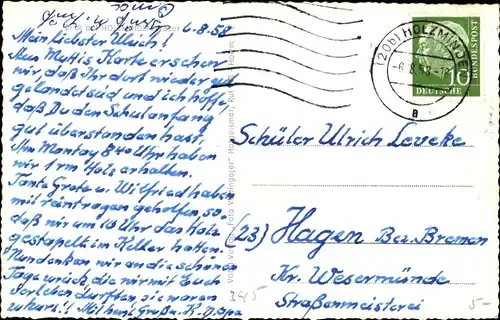 6.8.58
Mein liebster Ulrich!
Aus Muttis Karte ersehen
wir, daß Ihr dort wieder gut
gelandet seid und ich hoffe,
daß Du den Schulanfang
gut überstanden hast,
Am Montag 8.40 Uhr haben
wir 1 rm Holz erhalten.
Tante Grete u. Wilfried haben
mit reintragen geholfen, so-
daß wir um 10 Uhr das Holz
gestapelt im Keller hatten.
Nun denken wir an die schönen
Tage zurück, die wir mit Euch
verleben durften, sie waren
zu kurz! Mit herzl. Gruß u. K. Opa
(20b) HOLZMINDEN
-6.8.58-18
a
10
DEUTSCHE
BUNDESPOST
Schüler Ulrich Leveke
(23) Hagen Bez. Bremen
Kr. Wesermünde
Straßenmeisterei
345
5-